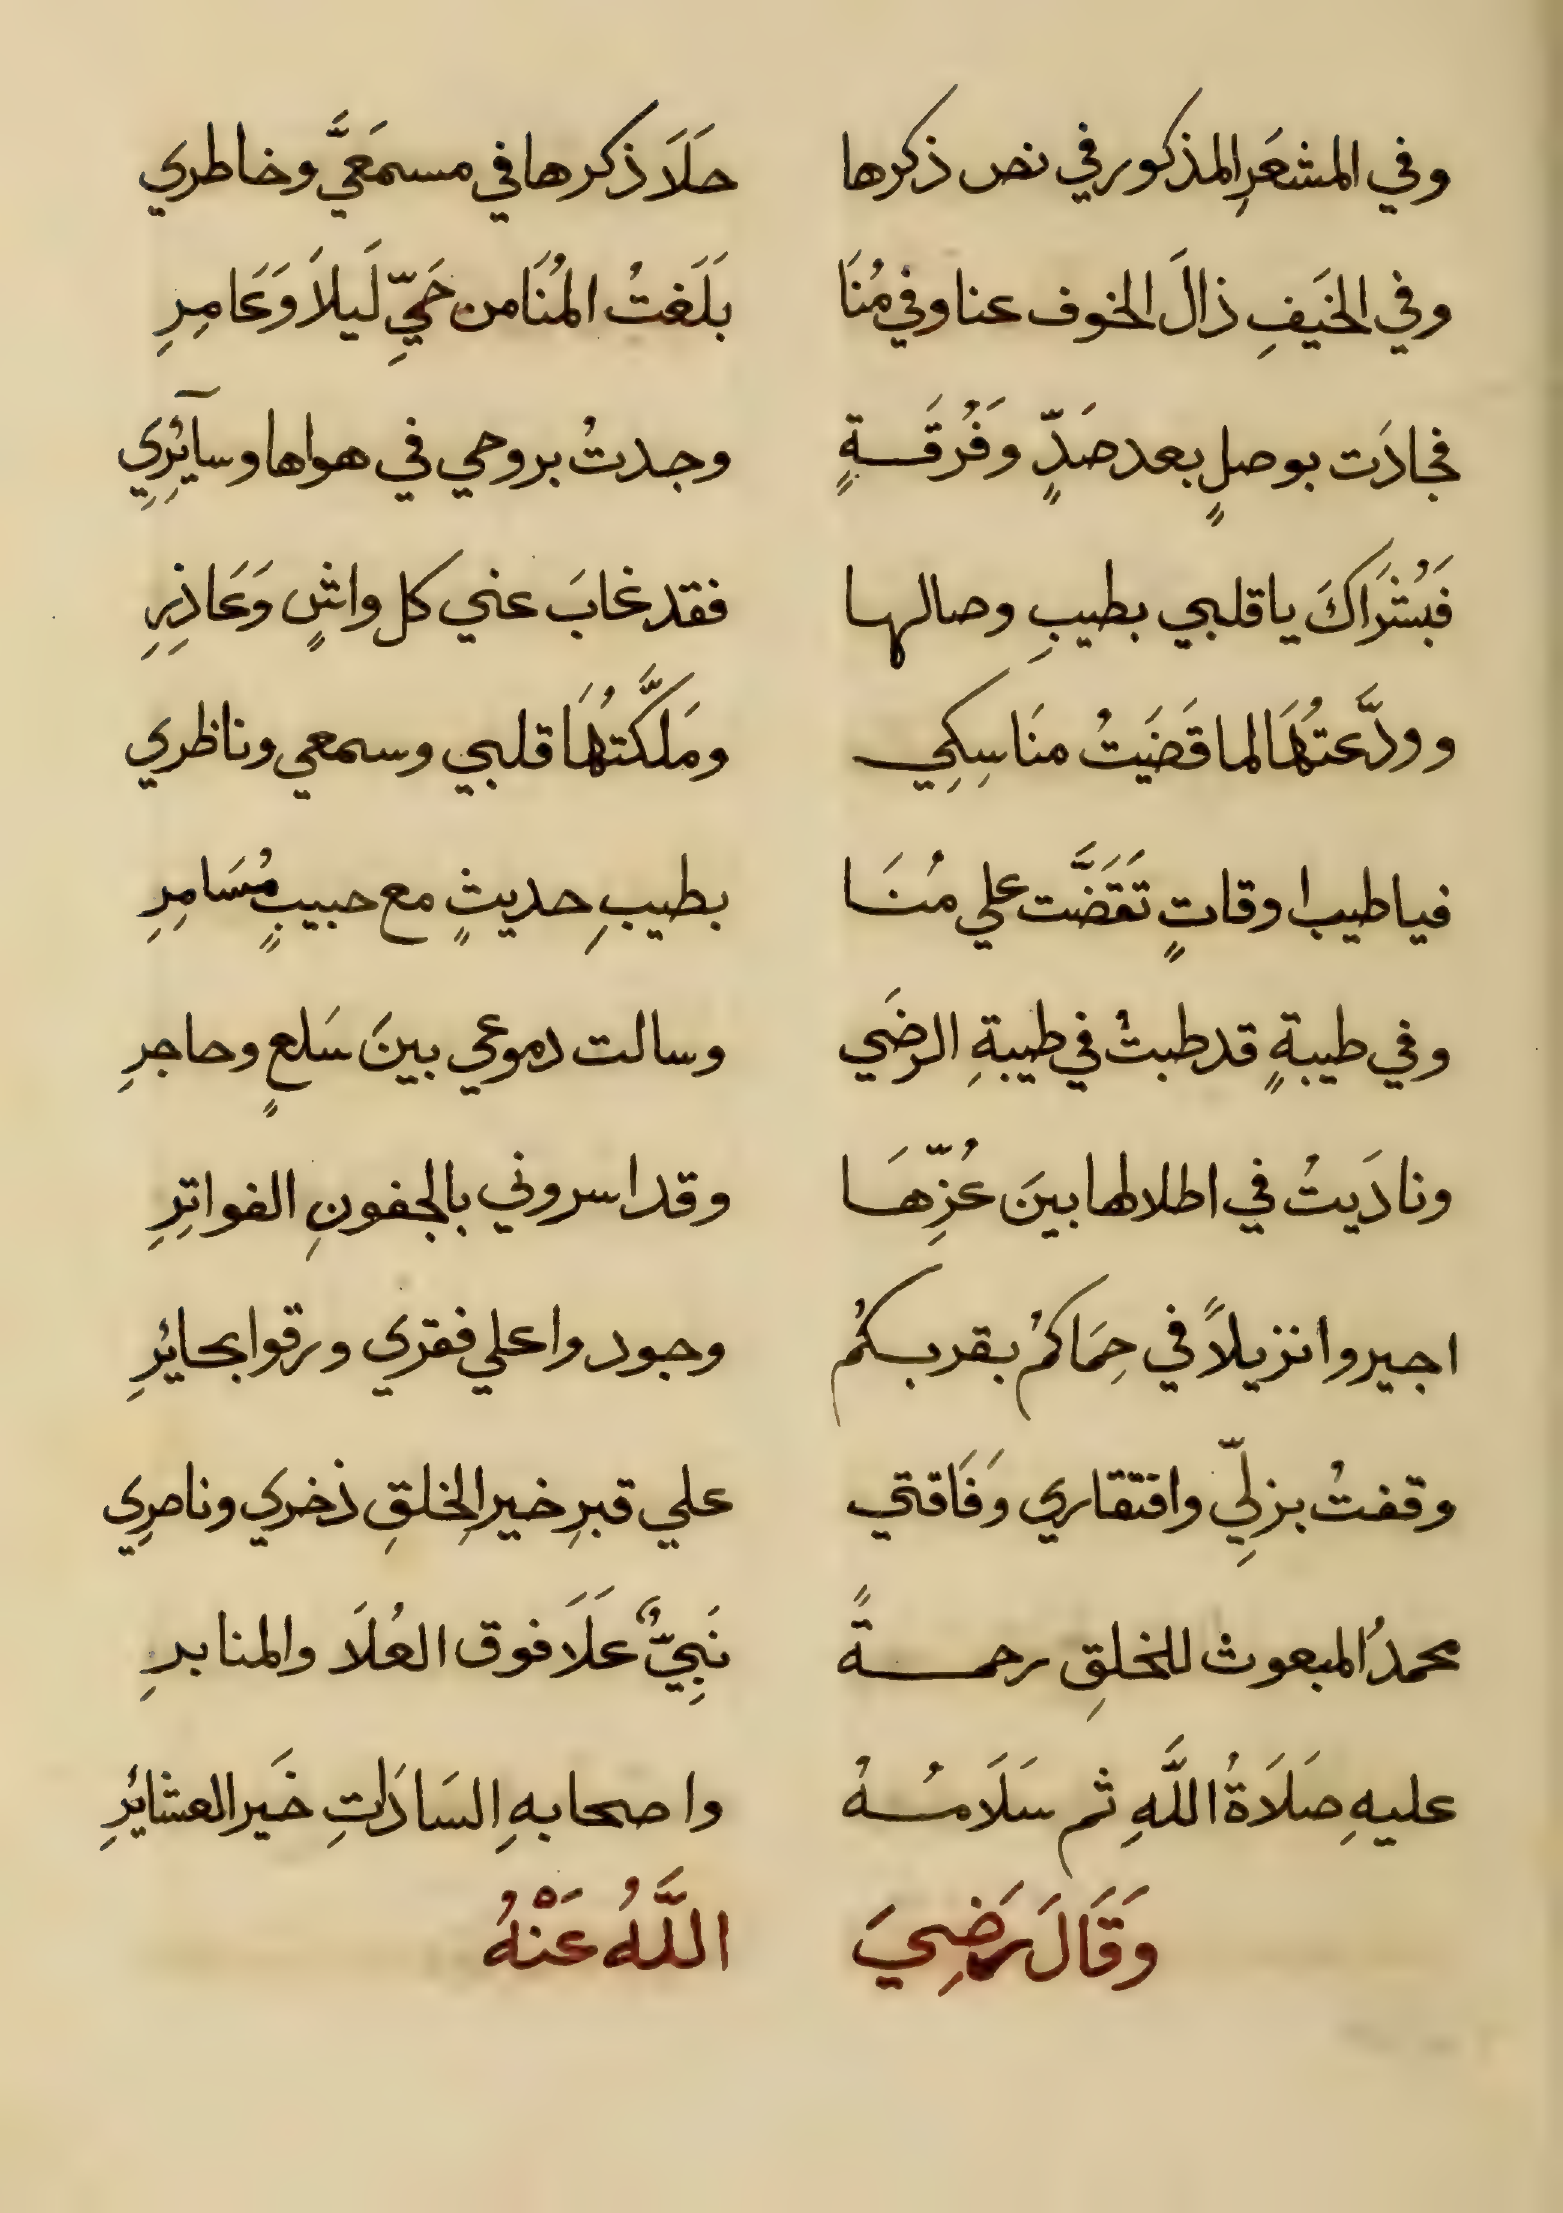 وفي المشعَرِ المذكور في نص ذكرها حَلَا ذكرها في مسمَعَيَّ وخاطري
وفي الخَيفِ ذالَ الخوف عنا وفي مُنَا بَلَغتُ المُنَا من حَيِّ لَيلَا وَعَامِرِ
فجادَت بوصلٍ بعد صَدٍّ وَفُرقَةٍ وجدتُ بروحي في هواها وسآئِرِي
فَبُشرَاكَ يا قلبي بطيبِ وصالها فقد غابَ عني كل واشٍ وَعَاذِرِ
وودَّعتُهَا لما قَضَيتُ منَاسِكِي ومَلَّكتُهَا قلبي وسمعي وناظري
فيا طيب اوقاتٍ تَقَضَّت علي مُنَا بطيبِ حديثٍ مع حبيبٍ مُسَامِرِ
وفي طيبةٍ قد طبتُ في طيبةِ الرضَي وسالت دموعي بينَ سَلعٍ وحاجرِ
ونادَيتُ في اطلالها بينَ عُزِّهَا وقد اسروني بالجفونِ الفواتِرِ
اجيروا نزيلاً في حِمَاكمُ بقربكمُ وجودوا علي فقري ورقوا بحائِرِ
وقفتُ بزلِّي وافتقاري وَفَاقتي علي قبرِ خيرِ الخلقِ ذخري وناصرِي
محمدُ المبعوث للخلقِ رحمةً نَبِيٌّ عَلَا فوق العُلَا والمنابرِ
عليهِ صَلَاةُ اللَّهِ ثم سَلَامُهُ واصحابهِ السَادَاتِ خَير العشائِرِ
وَقَالَ رَضِيَ اللَّهُ عَنْهُ